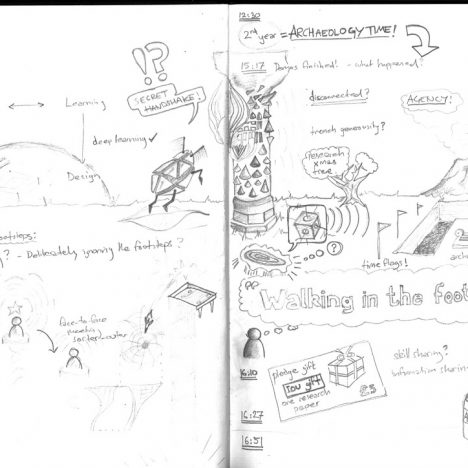 !?
SECRET
HANDSHAKE!
Learning
deep learning ✓
Design
footsteps:
? - Deliberately ignoring the footsteps?
face-to-face
meeting
12:30
2nd year = ARCHAEOLOGY TIME!
15:17 Designs finished! - what happened?
disconnected?
AGENCY!
trench generosity?
research
xmas
tree
?
time flags!
Walking in the foot
pledge gift
IOU gift
one research
paper
£3
skill sharing?
information sharing
16:10
16:27
16:51